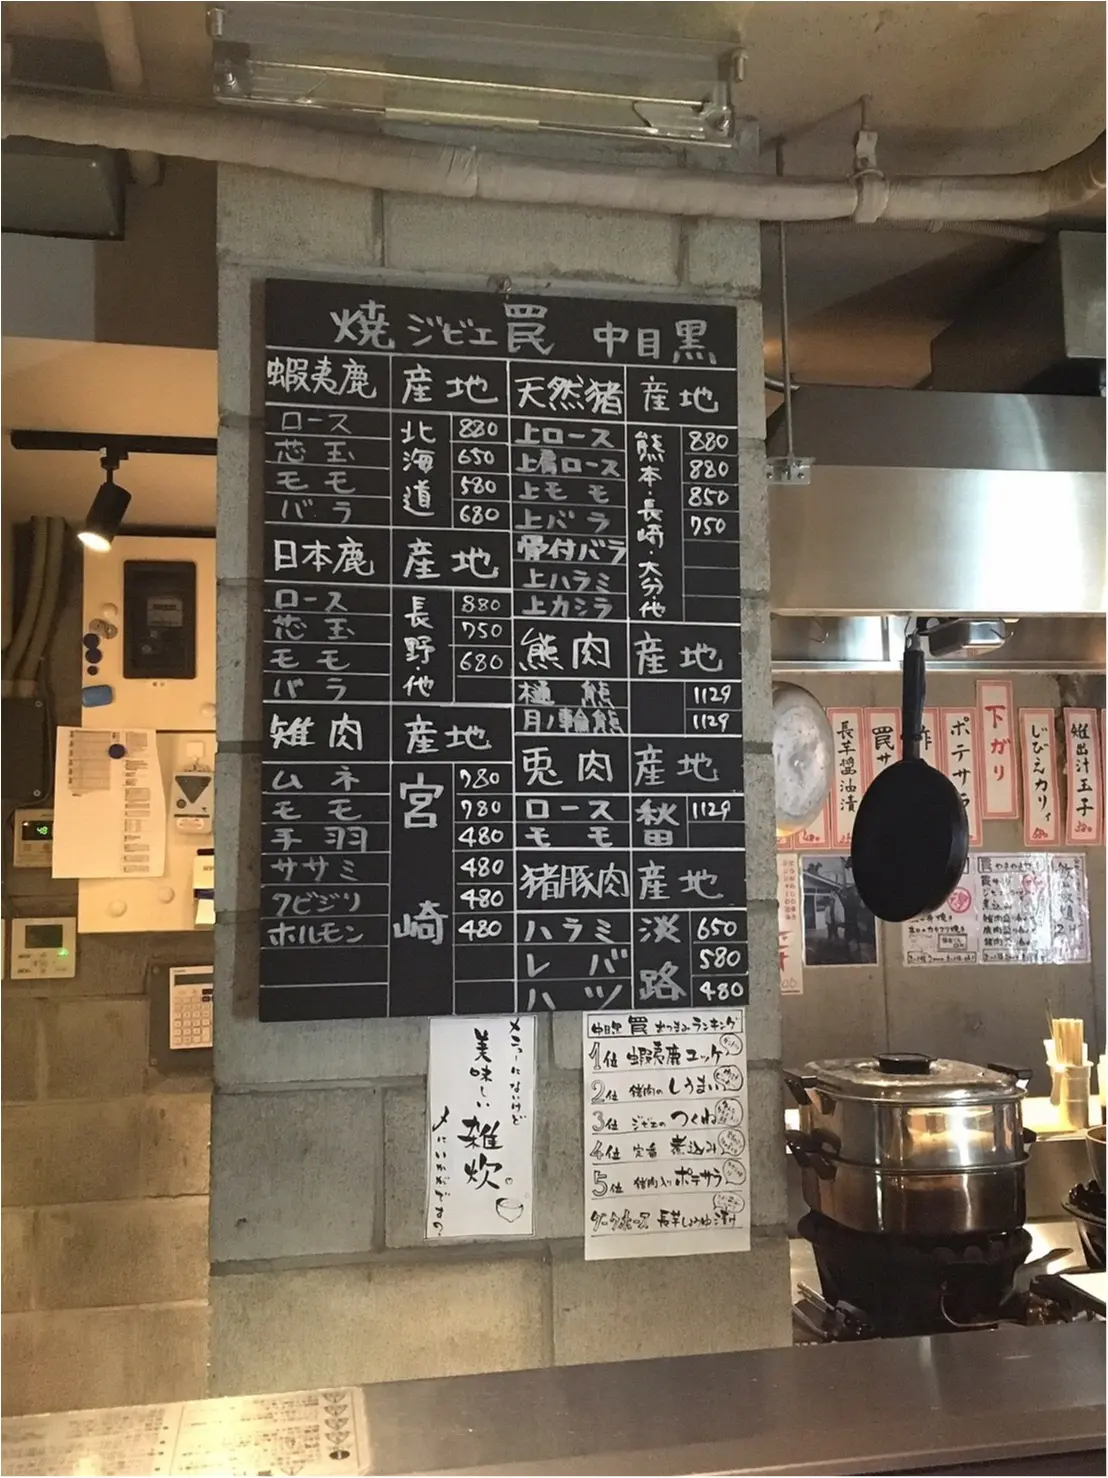 焼 ジビエ 罠 中目黒
蝦夷鹿 産地
ロース 北海道 880
芯玉 650
モモ 580
バラ 680
日本鹿 産地
ロース 長野・他 880
芯玉 750
モモ 680
バラ
雉肉 産地
ムネ 宮崎 780
モモ 780
手羽 480
ササミ 480
クビジリ 480
ホルモン 480
天然猪 産地
上ロース 熊本・長崎・大分・他 880
上肩ロース 880
上モモ 850
上バラ 750
骨付バラ
上ハラミ
上カシラ
熊肉 産地
樋熊 1129
月ノ輪熊 1129
兎肉 産地
ロース 秋田 1129
モモ
猪豚肉 産地
ハラミ 淡路 650
レバ 580
ハツ 480
メニューにないけど
美味しい
雑炊。
〆にいかがですか。
中目黒 罠 おつまみランキング
1位 蝦夷鹿ユッケ
2位 猪肉のしうまい
3位 ジビエのつくね
4位 定番 煮込み
5位 猪肉入りポテサラ
ダークホース 長芋しょうゆ漬け
長芋醤油漬
罠サ
ポテサラ
下ガリ
じびえカリィ
雉出汁玉子